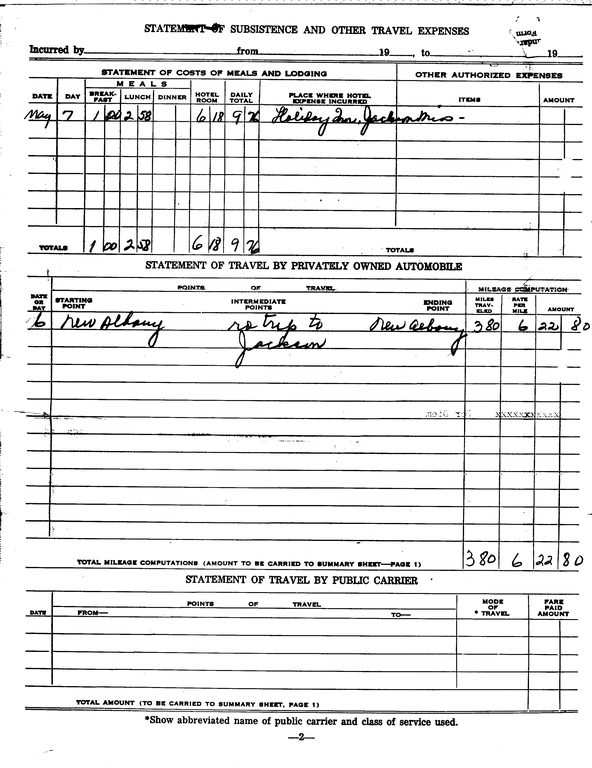 STATEMENT OF SUBSISTENCE AND OTHER TRAVEL EXPENSES
Incurred by from 19 , to 19
STATEMENT OF COSTS OF MEALS AND LODGING OTHER AUTHORIZED EXPENSES
MEALS
DATE DAY BREAK-FAST LUNCH DINNER HOTEL ROOM DAILY TOTAL PLACE WHERE HOTEL EXPENSE INCURRED ITEMS AMOUNT
May 7 1 00 2 58 6 18 9 76 Holiday Inn, Jackson Miss -
TOTALS 1 00 2 58 6 18 9 76 TOTALS
STATEMENT OF TRAVEL BY PRIVATELY OWNED AUTOMOBILE
POINTS OF TRAVEL MILEAGE COMPUTATION
DATE OR DAY STARTING POINT INTERMEDIATE POINTS ENDING POINT MILES TRAV-ELED RATE PER MILE AMOUNT
6 New Albany rd trip to New Albany 380 6 22 80
Jackson
XXXXXXXXXXXX
TOTAL MILEAGE COMPUTATIONS (AMOUNT TO BE CARRIED TO SUMMARY SHEET—PAGE 1) 380 6 22 80
STATEMENT OF TRAVEL BY PUBLIC CARRIER
POINTS OF TRAVEL MODE OF * TRAVEL FARE PAID AMOUNT
DATE FROM— TO—
TOTAL AMOUNT (TO BE CARRIED TO SUMMARY SHEET, PAGE 1)
*Show abbreviated name of public carrier and class of service used.
—2—